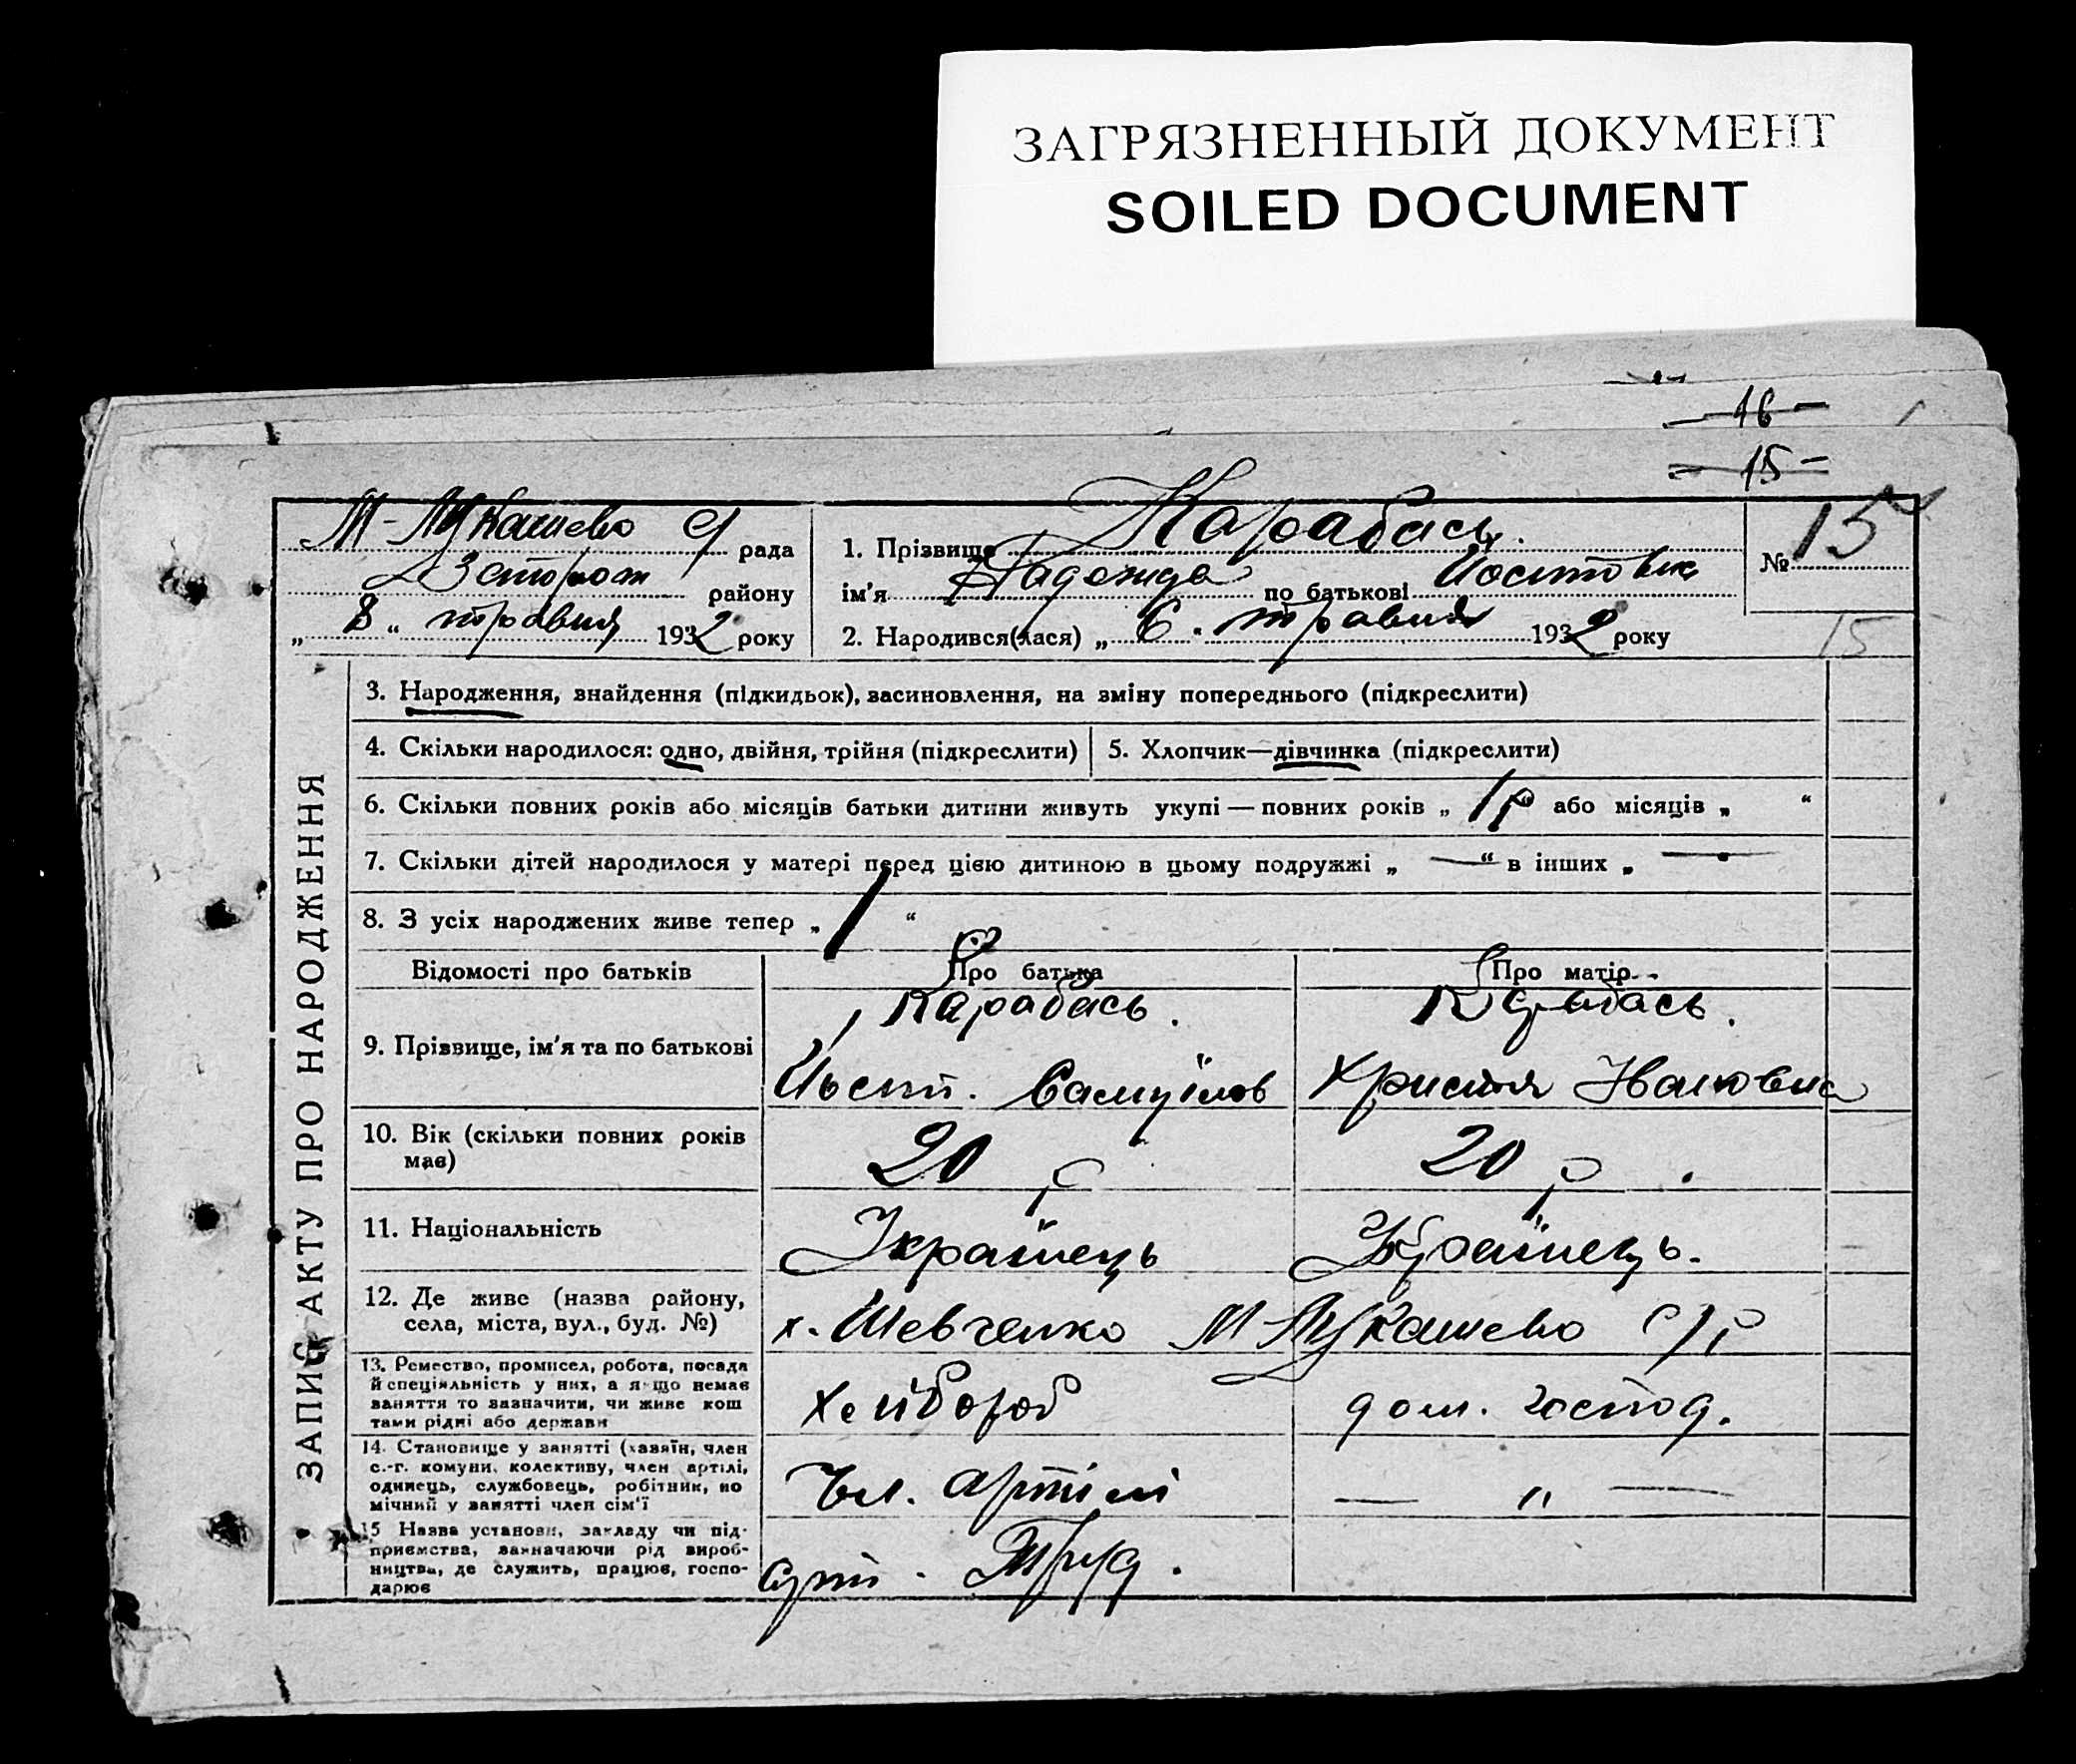 ЗАГРЯЗНЕННЫЙ ДОКУМЕНТ
SOILED DOCUMENT
— 16 —
— 15 —
М-Лукашево с/ рада
районy
„ 8 “ травня 1932 року
1. Прізвище Карабась.
ім'я Надежда по батькові
2. Народився(лася) „ 6 . травня 1932 року
№ 15
15
ЗАПИС АКТУ ПРО НАРОДЖЕННЯ
3. Народження, знайдення (підкидьок), засиновлення, на зміну попереднього (підкреслити)
4. Скільки народилося: одно, двійня, трійня (підкреслити)
5. Хлопчик—дівчинка (підкреслити)
6. Скільки повних років або місяців батьки дитини живуть укупі — повних років „ 1 р “ або місяців „ “
7. Скільки дітей народилося у матері перед цією дитиною в цьому подружжі „ — “ в інших „ —
8. З усіх народжених живе тепер „ 1 “
Відомості про батьків
Про батька
Про матір
9. Прізвище, ім'я та по батькові
Карабась.
Карабась.
Йост. Самуїлов
Христя Івановна
10. Вік (скільки повних років
має)
20 р
20 р.
11. Національність
Українець
Українець.
12. Де живе (назва району,
села, міста, вул., буд. №)
х. Шевченко М-Лукашево с/р
13. Ремество, промисел, робота, посада
й спеціяльність у них, а якщо немає
заняття то зазначити, чи живе кош
тами рідні або держави
хлібороб
дом. господ.
14. Становище у занятті (хазяїн, член
с.-г. комуни, колективу, член артілі,
одинець, службовець, робітник, по
мічний у занятті член сім'ї
Чл. артілі
— " —
15 Назва установи, закладу чи під-
приємства, зазначаючи рід вироб-
ництва, де служить, працює, госпо-
дарює
арт. Труд.